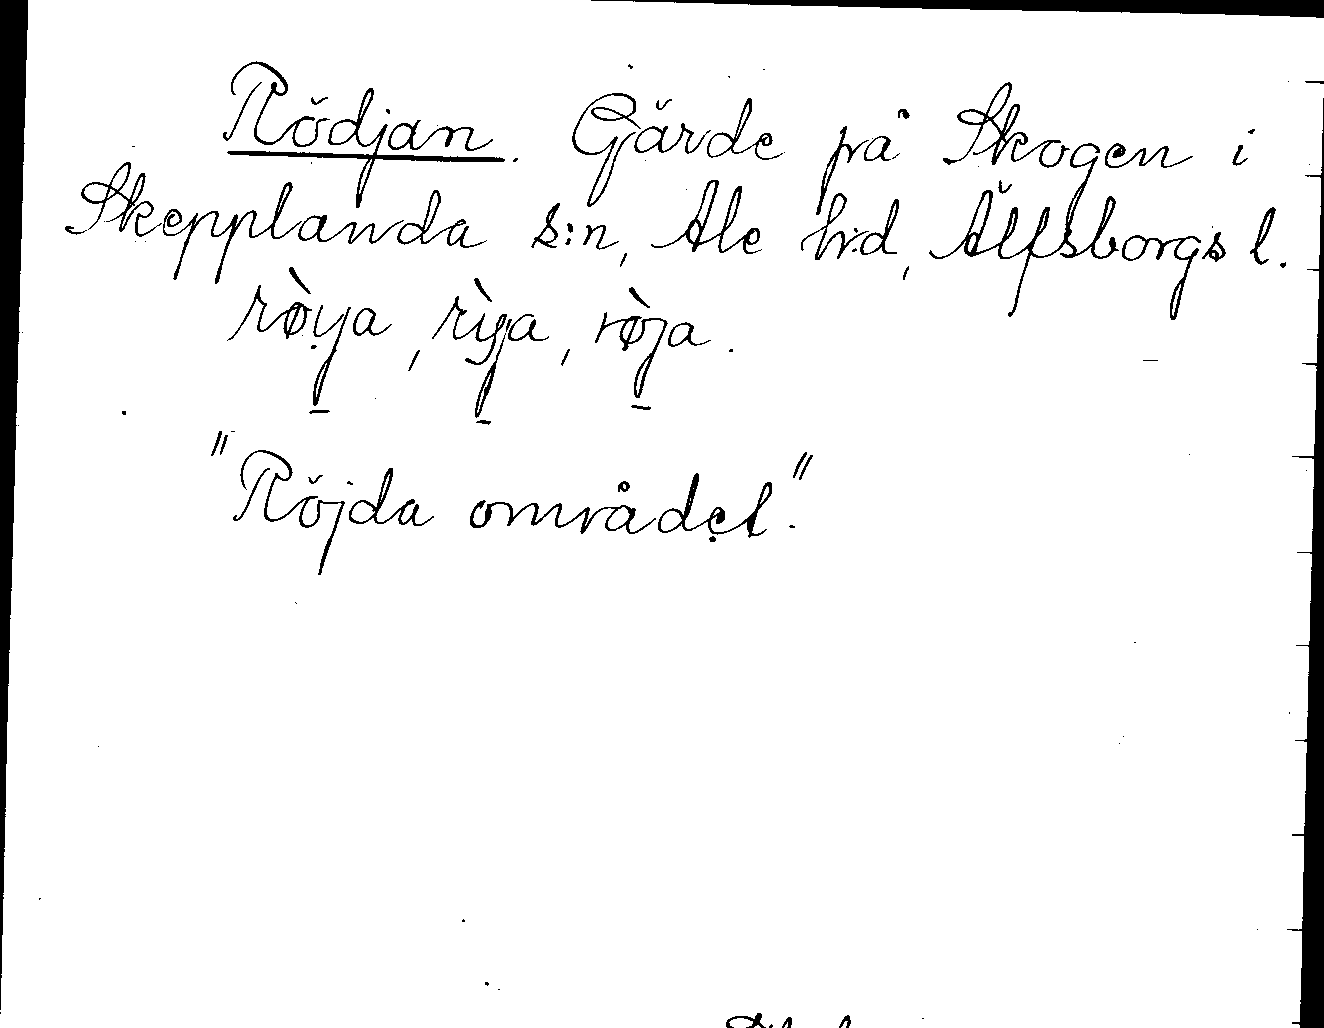 Rödjan. Gärde på Skogen i
Skepplanda s:n, Ale hd, Älfsborgs l.
rø̀ya, rỳja, rø̀ja.
"Röjda området."